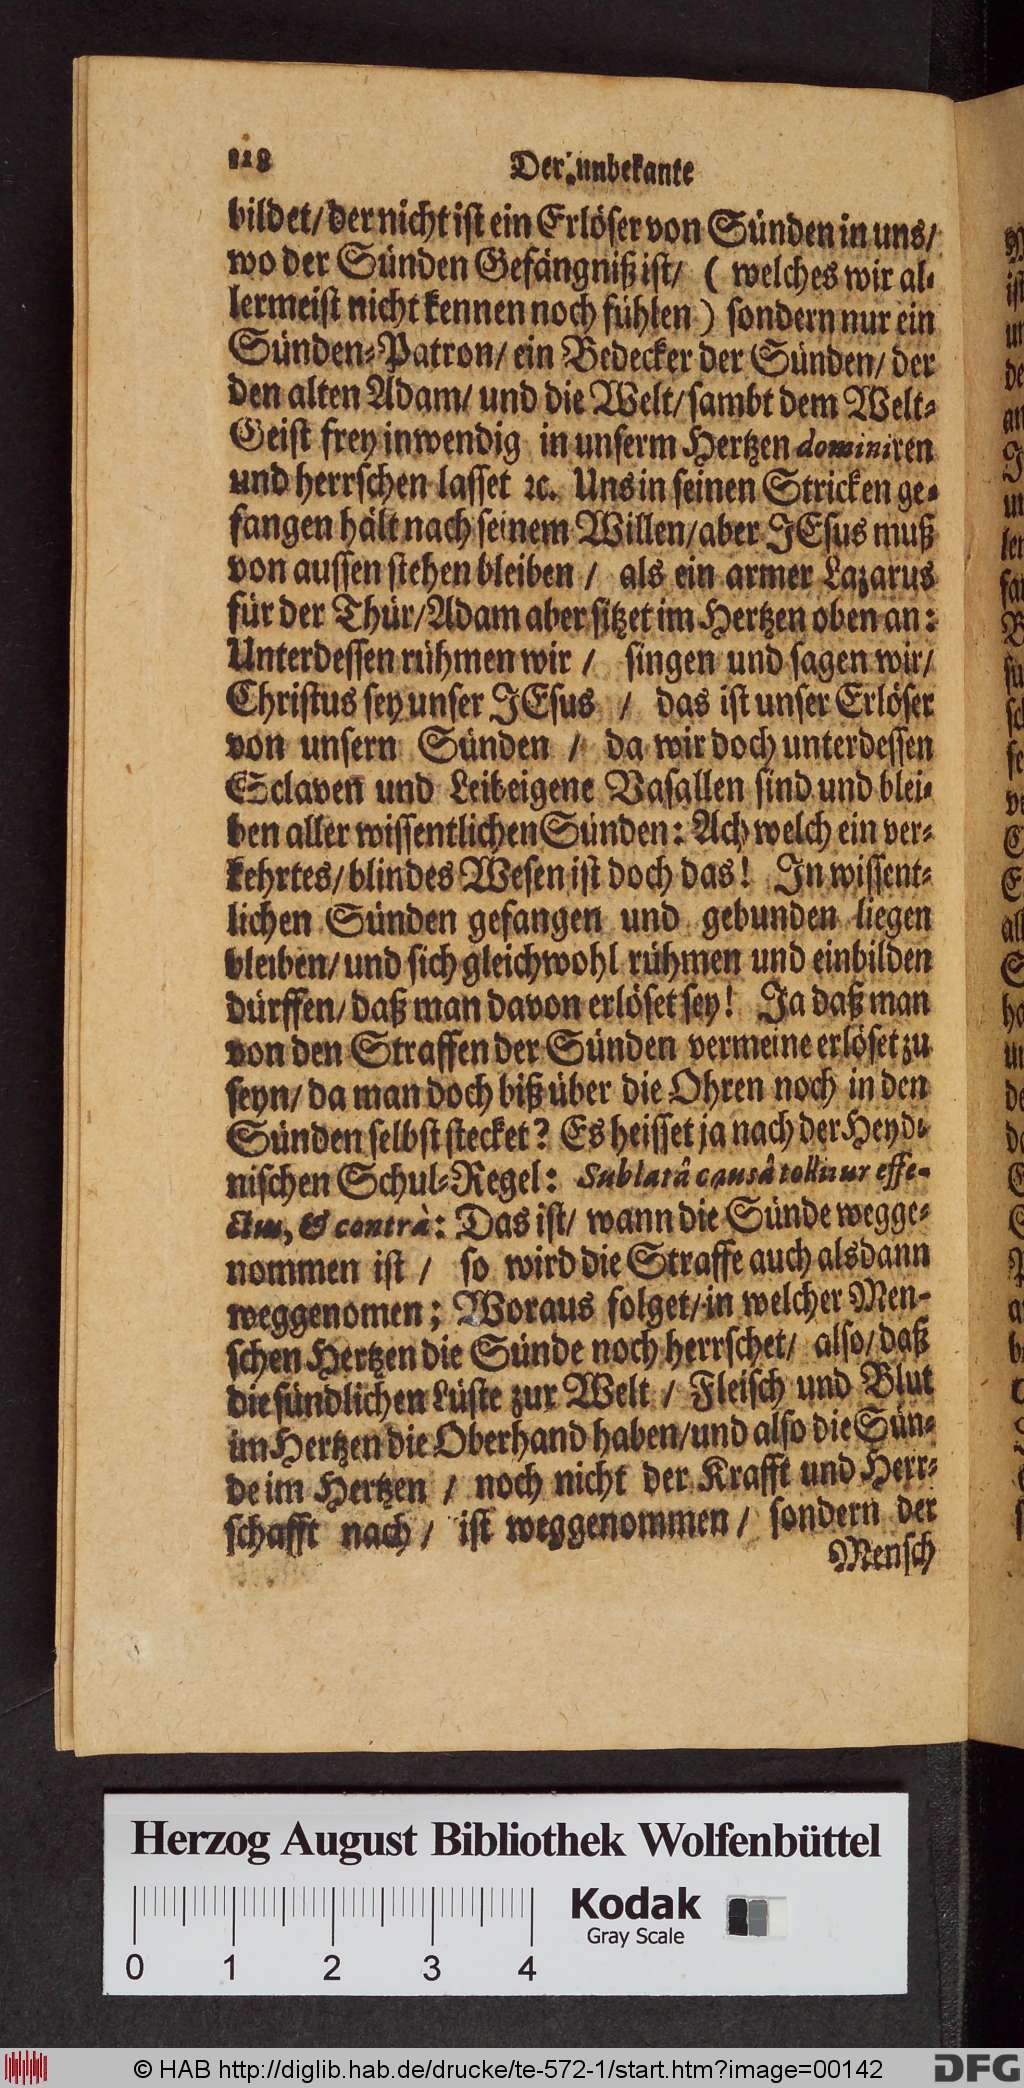 128 Der unbekante
bildet/ der nicht ist ein Erlöser von Sünden in uns/
wo der Sünden Gefängniß ist/ ( welches wir al-
lermeist nicht kennen noch fühlen ) sondern nur ein
Sünden-Patron/ ein Bedecker der Sünden/ der
den alten Adam/ und die Welt/ sambt dem Welt-
Geist frey inwendig in unserm Hertzen dominiren
und herrschen lasset ꝛc. Uns in seinen Stricken ge-
fangen hält nach seinem Willen/ aber JEsus muß
von aussen stehen bleiben / als ein armer Lazarus
für der Thür/ Adam aber sitzet im Hertzen oben an:
Unterdessen rühmen wir / singen und sagen wir/
Christus sey unser JEsus / das ist unser Erlöser
von unsern Sünden / da wir doch unterdessen
Sclaven und Leibeigene Vasallen sind und blei-
ben aller wissentlichen Sünden: Ach welch ein ver-
kehrtes/ blindes Wesen ist doch das! In wissent-
lichen Sünden gefangen und gebunden liegen
bleiben/ und sich gleichwohl rühmen und einbilden
dürffen/ daß man davon erlöset sey! Ja daß man
von den Straffen der Sünden vermeine erlöset zu
seyn/ da man doch biß über die Ohren noch in den
Sünden selbst stecket? Es heisset ja nach der Heyd-
nischen Schul-Regel: Sublatâ causâ tollitur effe-
ctus, & contrà: Das ist/ wann die Sünde wegge-
nommen ist / so wird die Straffe auch alsdann
weggenomen; Woraus folget/ in welcher Men-
schen Hertzen die Sünde noch herrschet/ also/ daß
die sündlichen Lüste zur Welt / Fleisch und Blut
im Hertzen die Oberhand haben/ und also die Sün-
de im Hertzen / noch nicht der Krafft und Herr-
schafft nach / ist weggenommen / sondern der
Mensch
Herzog August Bibliothek Wolfenbüttel
0 1 2 3 4
Kodak
Gray Scale
© HAB http://diglib.hab.de/drucke/te-572-1/start.htm?image=00142
DFG